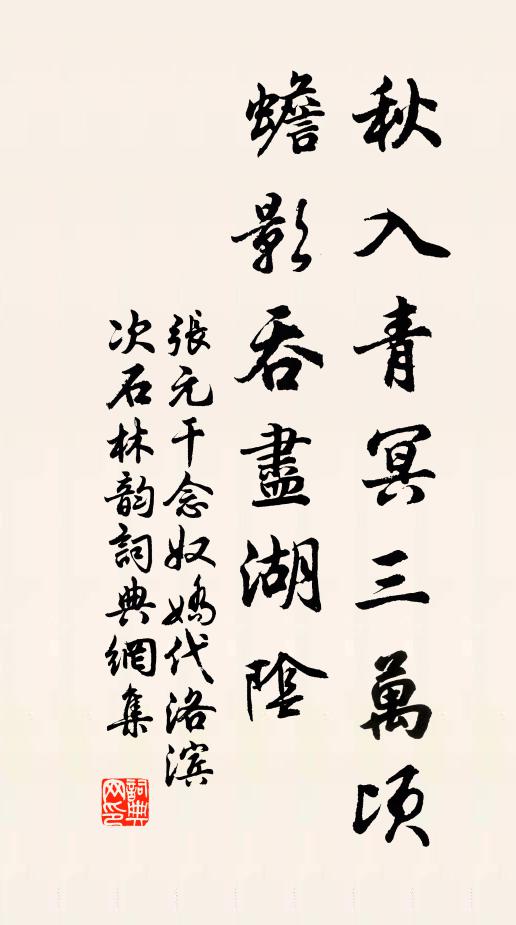 秋入青冥三萬頃
蟾影吞盡湖陰
張元干念奴嬌代洛滨
次石林韵詞典網集
詞典网印